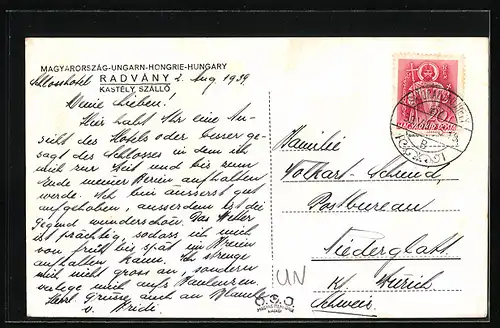 MAGYARORSZÁG-UNGARN-HONGRIE-HUNGARY
RADVÁNY
KASTÉLY SZÁLLÓ
Schlosshotel 2. Aug 1939.
Meine Lieben!
Hier habt Ihr eine An-
sicht des Hotels oder besser ge-
sagt des Schlosses in dem ich
mich zur Zeit und bis zum
Ende meiner Ferien aufhalten
werde. Ich bin äusserst gut
aufgehoben, ausserdem ist die
Gegend wunderschön. Das Wetter
ist prächtig, sodass ich mich
von früh bis spät im Freien
aufhalten kann. Ich strenge
mich nicht gross an, sondern
verlege mich aufs Faulenzen.
Herzl. Grüsse auch an
v. Fridi.
Familie
Volkart-Schmid,
Postbureau
Niederglatt
Kt. Zürich
Schweiz
UN
20
MAGYAR KIR. POSTA